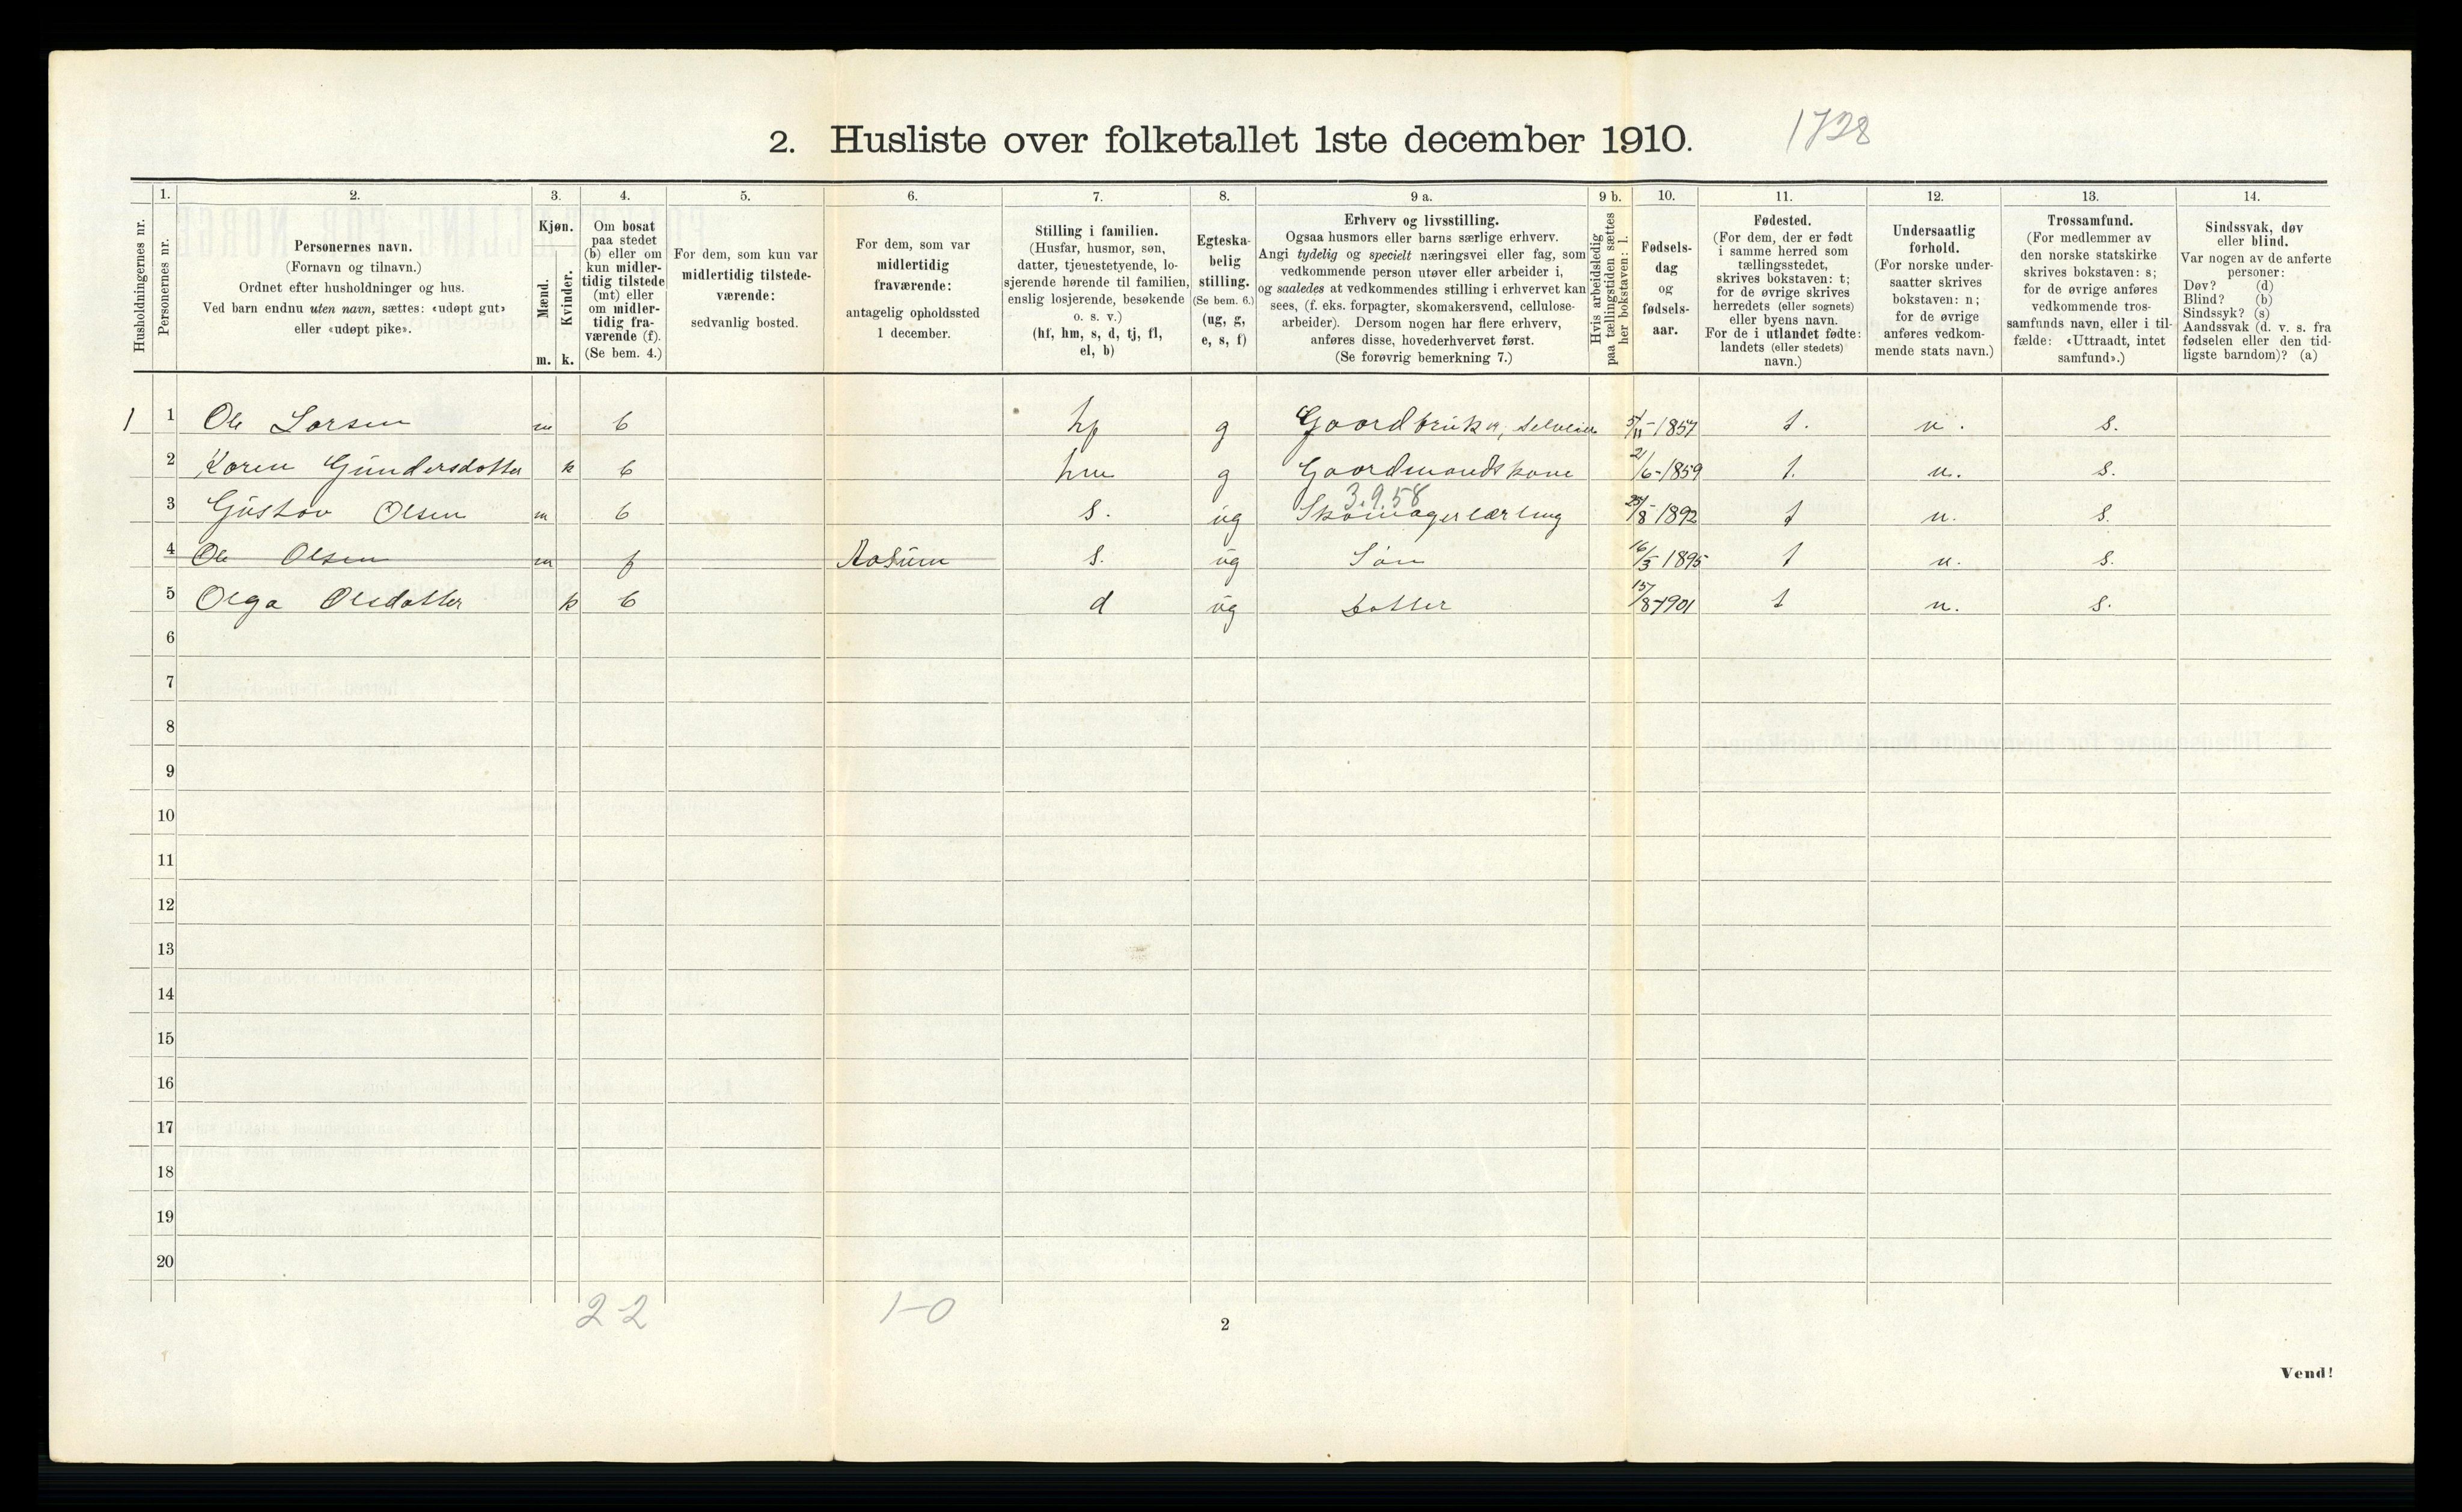 2. Husliste over folketallet 1ste december 1910.
1728
Husholdningernes nr.
1.
Personernes nr.
2.
Personernes navn.
(Fornavn og tilnavn.)
Ordnet efter husholdninger og hus.
Ved barn endnu uten navn, sættes: «udøpt gut»
eller «udøpt pike».
3.
Kjøn.
Mænd.
Kvinder.
m. k.
4.
Om bosat
paa stedet
(b) eller om
kun midler-
tidig tilstede
(mt) eller
om midler-
tidig fra-
værende (f).
(Se bem. 4.)
5.
For dem, som kun var
midlertidig tilstede-
værende:
sedvanlig bosted.
6.
For dem, som var
midlertidig
fraværende:
antagelig opholdssted
1 december.
7.
Stilling i familien.
(Husfar, husmor, søn,
datter, tjenestetyende, lo-
sjerende hørende til familien,
enslig losjerende, besøkende
o. s. v.)
(hf, hm, s, d, tj, fl,
el, b)
8.
Egteska-
belig
stilling.
(Se bem. 6.)
(ug, g,
e, s, f)
9 a.
Erhverv og livsstilling.
Ogsaa husmors eller barns særlige erhverv.
Angi tydelig og specielt næringsvei eller fag, som
vedkommende person utøver eller arbeider i,
og saaledes at vedkommendes stilling i erhvervet kan
sees, (f. eks. forpagter, skomakersvend, cellulose-
arbeider). Dersom nogen har flere erhverv,
anføres disse, hovederhvervet først.
(Se forøvrig bemerkning 7.)
9 b.
Hvis arbeidsledig
paa tællingstiden sættes
her bokstaven: l.
10.
Fødsels-
dag
og
fødsels-
aar.
11.
Fødested.
(For dem, der er født
i samme herred som
tællingsstedet,
skrives bokstaven: t;
for de øvrige skrives
herredets (eller sognets)
eller byens navn.
For de i utlandet fødte:
landets (eller stedets)
navn.)
12.
Undersaatlig
forhold.
(For norske under-
saatter skrives
bokstaven: n;
for de øvrige
anføres vedkom-
mende stats navn.)
13.
Trossamfund.
(For medlemmer av
den norske statskirke
skrives bokstaven: s;
for de øvrige anføres
vedkommende tros-
samfunds navn, eller i til-
fælde: «Uttraadt, intet
samfund».)
14.
Sindssvak, døv
eller blind.
Var nogen av de anførte
personer:
Døv? (d)
Blind? (b)
Sindssyk? (s)
Aandssvak (d. v. s. fra
fødselen eller den tid-
ligste barndom)? (a)
1 1 Ole Larsen m b hf g Gaardbruker, selveier 5/11-1857 t. n. s.
2 Karen Gundersdatter k b hm g Gaardmandskone 2/6-1859 t. n. s.
3.9.58
3 Gustav Olsen m b s. ug Skomagerlærling 23/8 1892 t n. s.
4 Ole Olsen m f s. ug Søn 16/3 1895 t n. s.
5 Olga Olsdatter k b d ug Datter 15/8-1901 t n. s.
6
7
8
9
10
11
12
13
14
15
16
17
18
19
20
2-2 1-0
2
Vend!